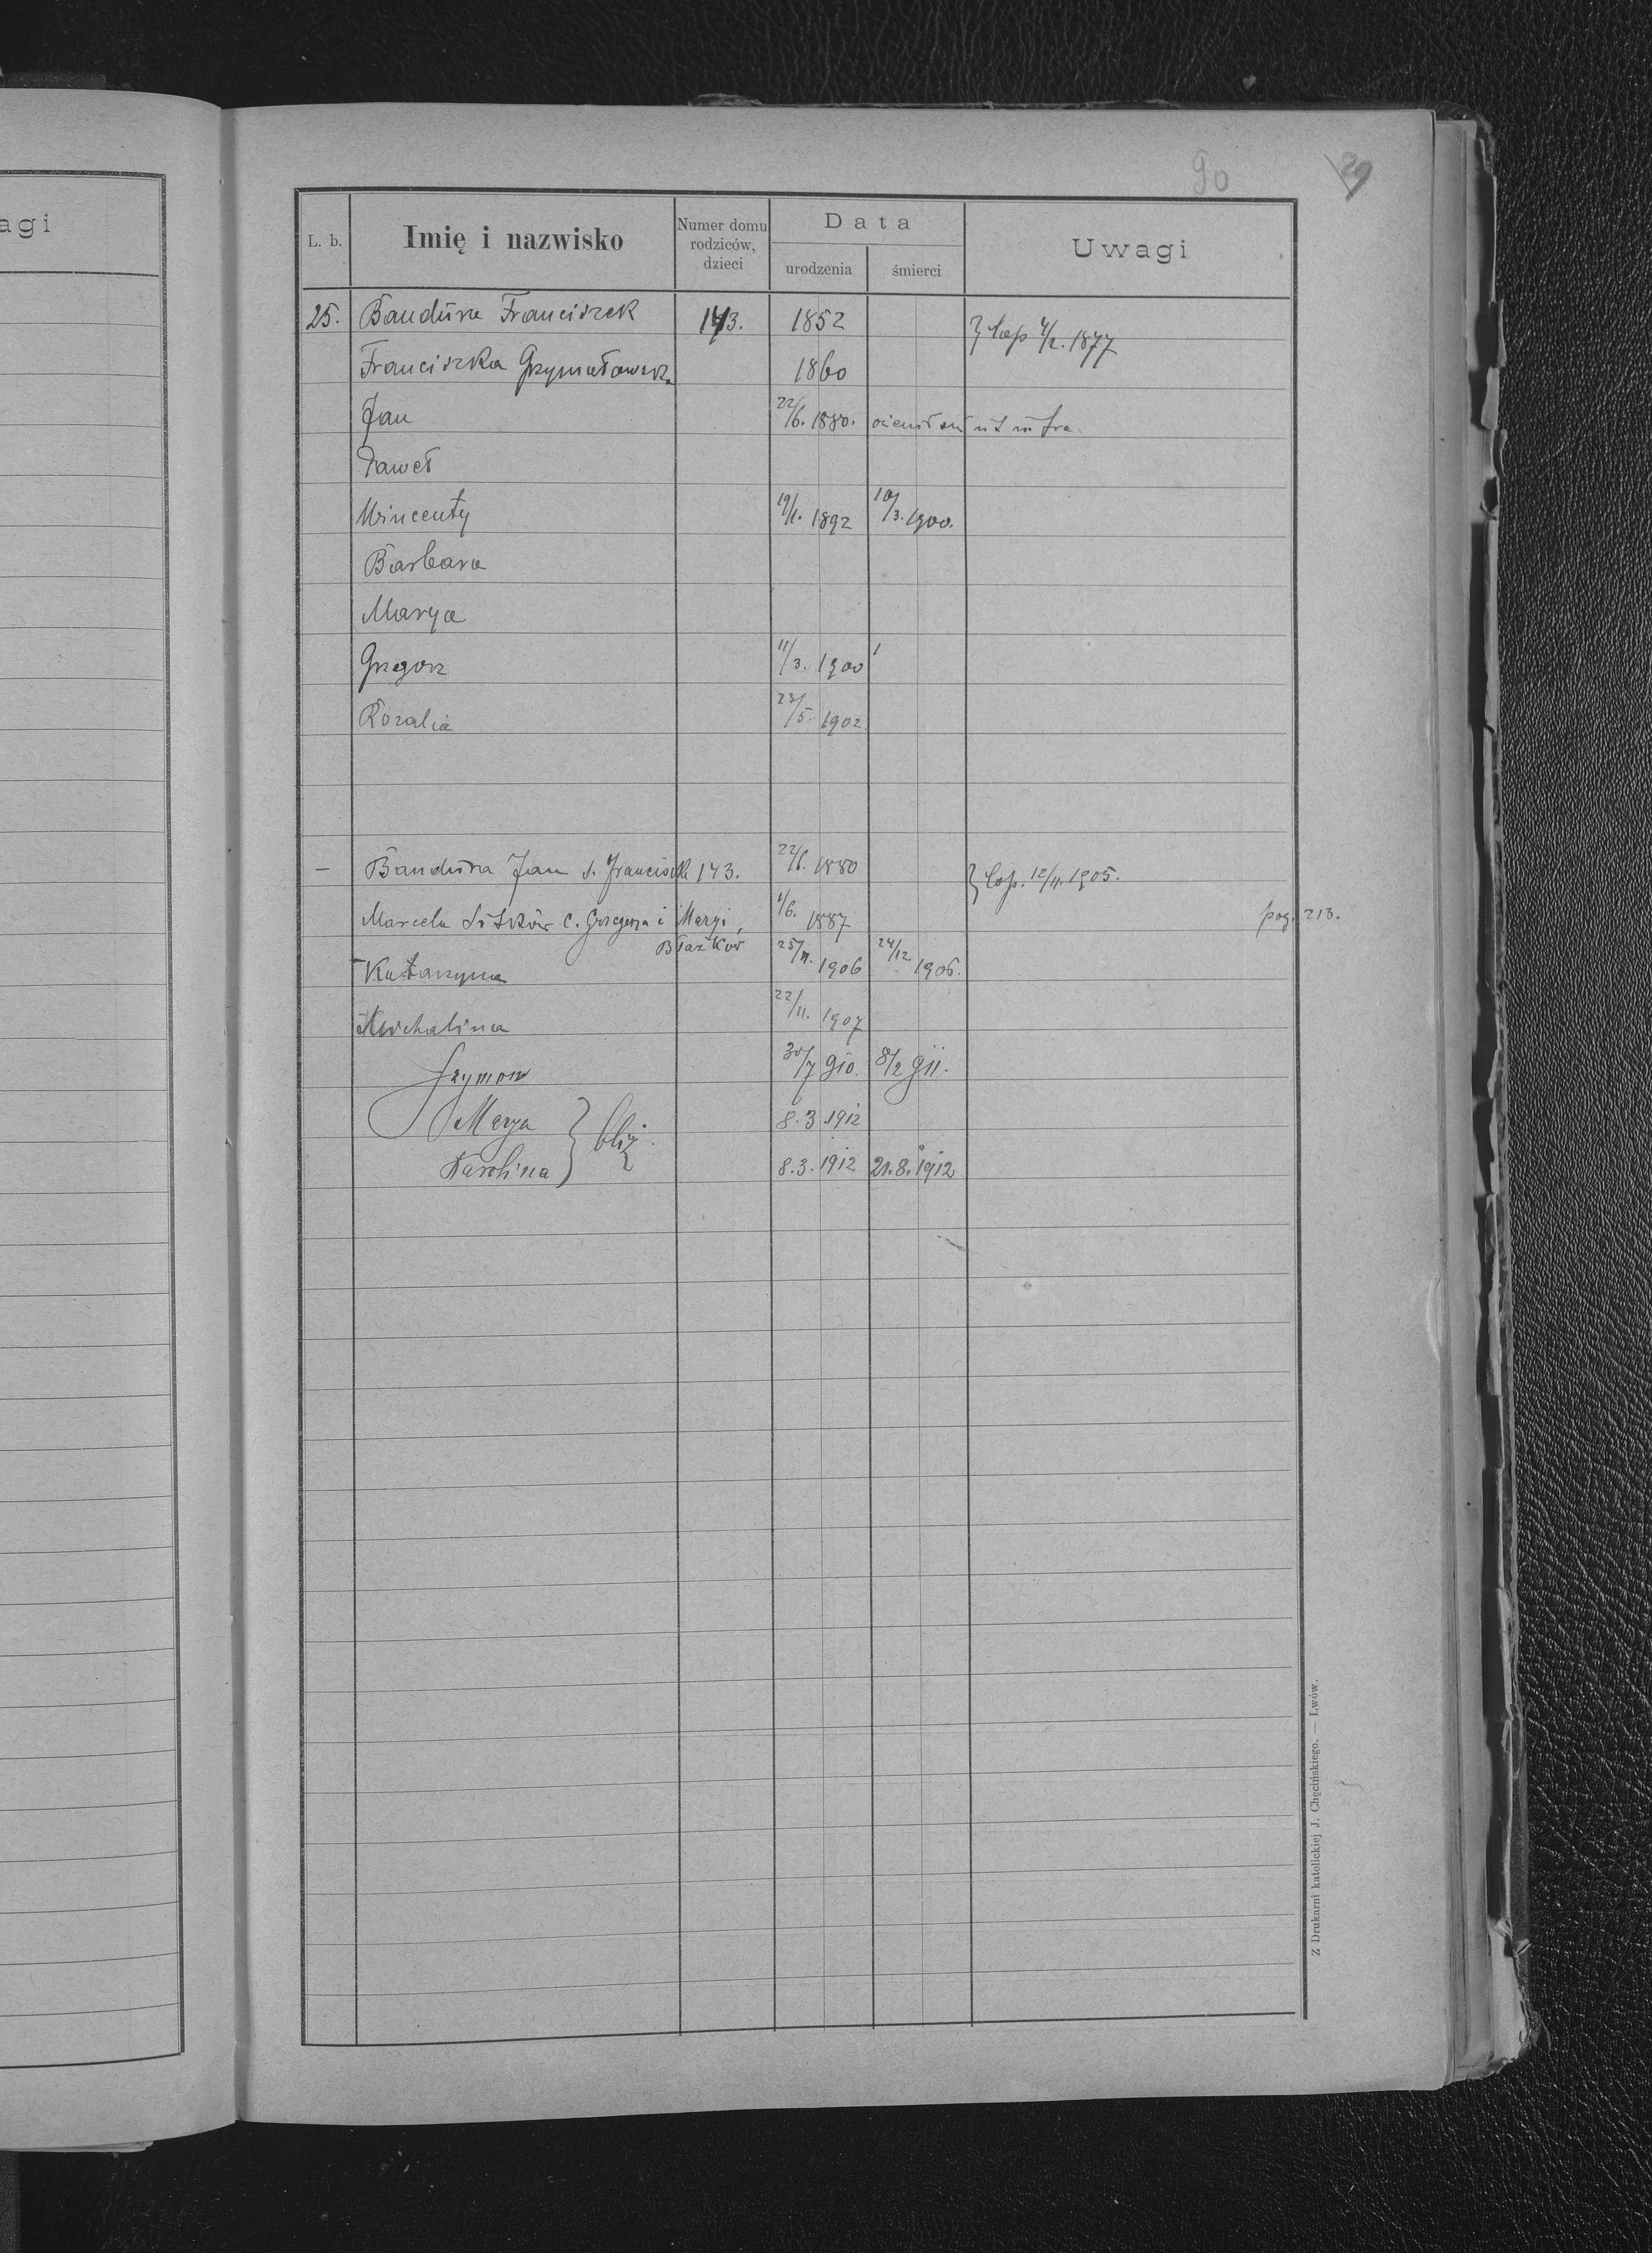 agi
90
29
L. b.
Imię i nazwisko
Numer domu rodziców, dzieci
Data
urodzenia
śmierci
Uwagi
25. Bandura Franciszek 143. 1852 } cop 4/2. 1877
Franciszka Grzymałowsk. 1860
Jan 22/6. 1880. ożenił się
Paweł
Wincenty 19/1. 1892 10/3. 1900.
Barbara
Marya
Grzegorz 11/3. 1900
Rozalia 23/5. 1902.
— Bandura Jan s. Franciszk 143. 22/6. 1880 } cop. 12/11. 1905.
Marcela c. Grzegorza i Maryi, 1/6. 1887 pag. 213.
Błażków
Katarzyna 25/11. 1906 24/12 1906.
Michalina 22/11. 1907
Szymon 30/7 910. 8/2 911.
Marya } bliź. 8.3.1912
Karolina 8.3.1912 21.8.1912
Z Drukarni katolickiej J. Chęcińskiego. — Lwów.